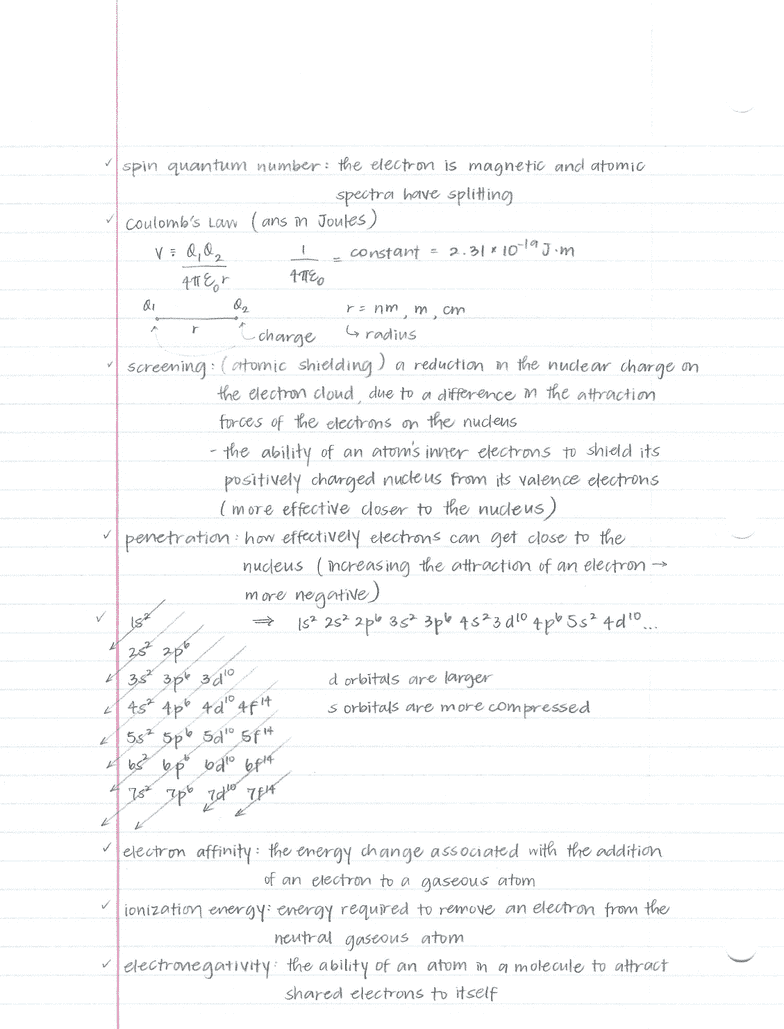 ✓ spin quantum number: the electron is magnetic and atomic
spectra have splitting
✓ Coulomb's Law (ans in Joules)
V = Q₁Q₂ / 4πε₀r    1 / 4πε₀ = constant = 2.31 × 10⁻¹⁹ J·m
Q₁ Q₂ r = nm, m, cm
r charge ↳ radius
✓ screening: (atomic shielding) a reduction in the nuclear charge on
the electron cloud, due to a difference in the attraction
forces of the electrons on the nucleus
- the ability of an atom's inner electrons to shield its
positively charged nucleus from its valence electrons
(more effective closer to the nucleus)
✓ penetration: how effectively electrons can get close to the
nucleus (increasing the attraction of an electron →
more negative)
✓ 1s² ⇒ 1s² 2s² 2p⁶ 3s² 3p⁶ 4s² 3d¹⁰ 4p⁶ 5s² 4d¹⁰...
2s² 2p⁶
3s² 3p⁶ 3d¹⁰ d orbitals are larger
4s² 4p⁶ 4d¹⁰ 4f¹⁴ s orbitals are more compressed
5s² 5p⁶ 5d¹⁰ 5f¹⁴
6s² 6p⁶ 6d¹⁰ 6f¹⁴
7s² 7p⁶ 7d¹⁰ 7f¹⁴
✓ electron affinity: the energy change associated with the addition
of an electron to a gaseous atom
✓ ionization energy: energy required to remove an electron from the
neutral gaseous atom
✓ electronegativity: the ability of an atom in a molecule to attract
shared electrons to itself